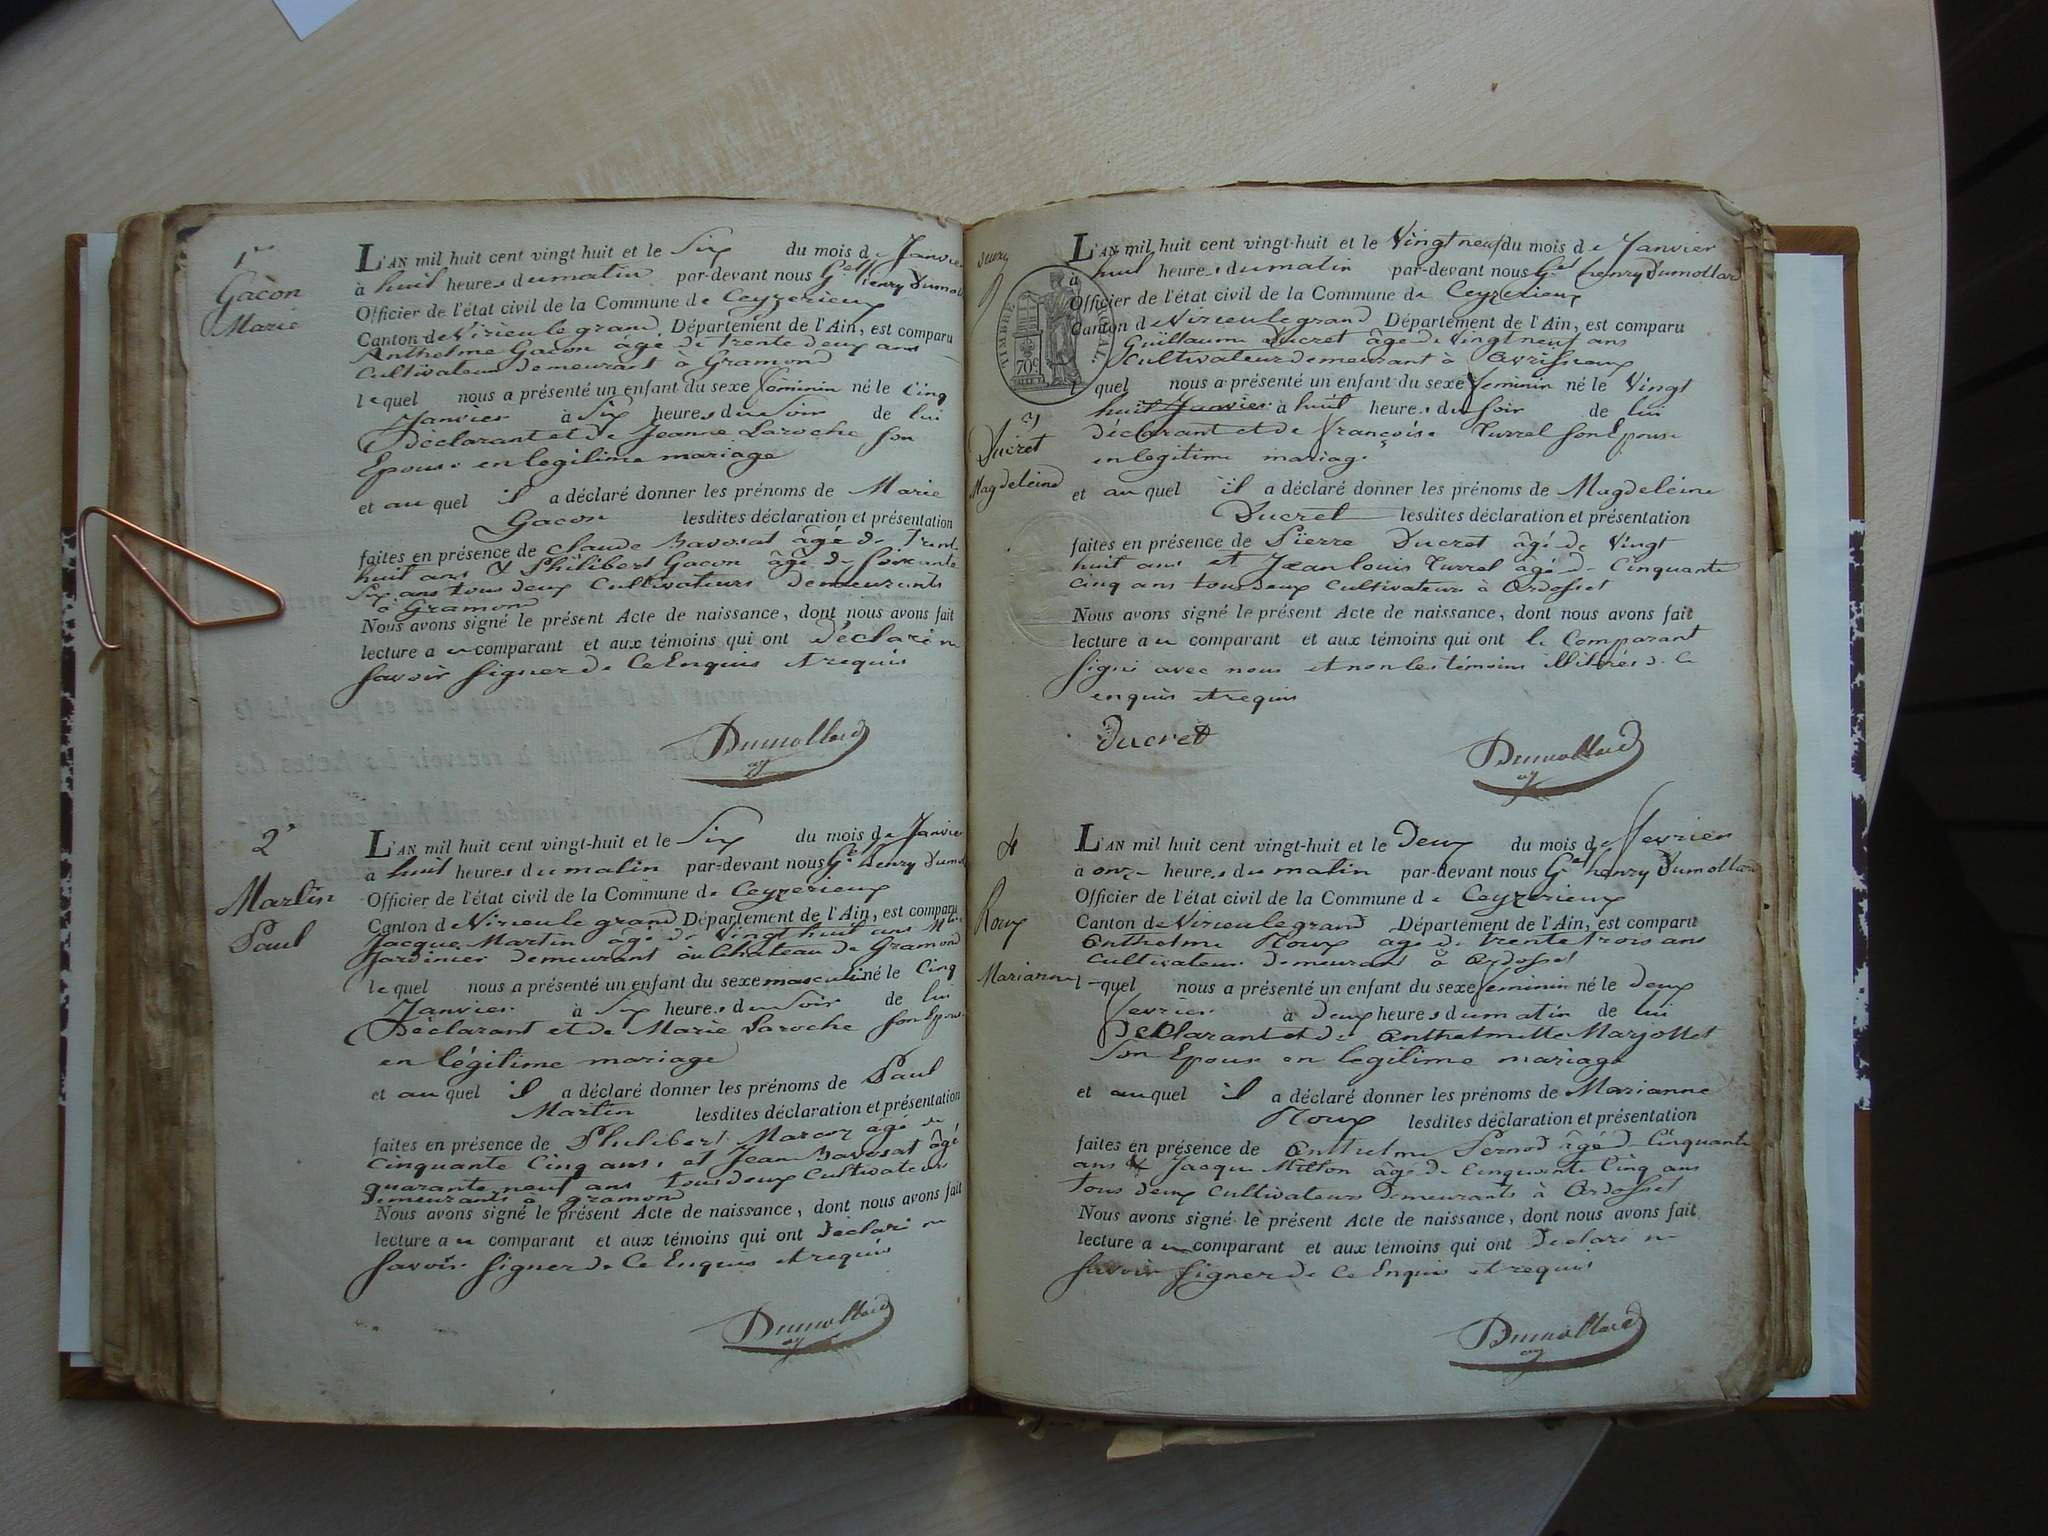 1er
Gacon
Marie
L'AN mil huit cent vingt-huit et le Six du mois de Janvier
à huit heures du matin par-devant nous Gel henry Dumol
Officier de l'état civil de la Commune de Ceyzerieux
Canton de Virieu le grand Département de l'Ain, est comparu
Anthelme Gacon âgé de trente deux ans
Cultivateur demeurant à Gramond
lequel nous a présenté un enfant du sexe féminin né le Cinq
Janvier à Six heures du Soir de lui
Déclarant et de Jeanne Laroche son
Epouse en legitime mariage
et auquel il a déclaré donner les prénoms de Marie
Gacon lesdites déclaration et présentation
faites en présence de Claude Bavosat âgé de Trente
huit ans & Philibert Gacon âgé de soixante
Six ans tous deux Cultivateurs demeurants
à Gramond
Nous avons signé le présent Acte de naissance, dont nous avons fait
lecture au comparant et aux témoins qui ont déclaré ne
savoir signer de Ce Enquis et requis
Dumollard
2e
Martin
Paul
L'AN mil huit cent vingt-huit et le Six du mois de Janvie
à huit heures du matin par-devant nous Gel henry Dumol
Officier de l'état civil de la Commune de Ceyzerieux
Canton de Virieu le grand Département de l'Ain, est comparu
Jacque Martin âgé de Vingt huit ans
Jardinier demeurant au Chateau de Gramond
lequel nous a présenté un enfant du sexe masculin né le Cinq
Janvier à Six heures du Soir de lui
Déclarant et de Marie Laroche son Epouse
en légitime mariage
et auquel il a déclaré donner les prénoms de Paul
Martin lesdites déclaration et présentation
faites en présence de Philibert Marcoz age de
Cinquante Cinq ans, et Jean Bavosat âgé
quarante neuf ans tous deux Cultivateurs
demeurants à gramond
Nous avons signé le présent Acte de naissance, dont nous avons fait
lecture au comparant et aux témoins qui ont Déclaré ne
savoir signer de Ce Enquis et requis
Dumollard
deux
TIMBRE ROYAL
70c
3
Ducret
Magdeleine
L'AN mil huit cent vingt-huit et le Vingt neuf du mois de Janvier
à huit heures du matin par-devant nous Gel henry Dumollard
Officier de l'état civil de la Commune de Ceyzerieux
Canton de Virieu le grand Département de l'Ain, est comparu
Guillaume Ducret âgé de Vingt neuf ans
Cultivateur demeurant à Avrissieux
lequel nous a présenté un enfant du sexe feminin né le Vingt
huit Janvier à huit heures du soir de lui
déclarant et de françoise Turrel son Epouse
en legitime mariage
et auquel il a déclaré donner les prénoms de Magdeleine
Ducret lesdites déclaration et présentation
faites en présence de Pierre Ducret âgé de Vingt
huit ans et Jean louis Turrel âgé de Cinquante
cinq ans tous deux Cultivateurs à Ardosset
Nous avons signé le présent Acte de naissance, dont nous avons fait
lecture au comparant et aux témoins qui ont le Comparant
signé avec nous et non les témoins illitérés de Ce
enquis et requis
Ducret
Dumollard
4
Roux
Marianne
L'AN mil huit cent vingt-huit et le Deux du mois de fevrier
à onze heures du matin par-devant nous Gel henry Dumollard
Officier de l'état civil de la Commune de Ceyzerieux
Canton de Virieu le grand Département de l'Ain, est comparu
Anthelme Roux age de trente trois ans
Cultivateur demeurant à Ardosset
lequel nous a présenté un enfant du sexe feminin né le deux
fevrier à deux heures du matin de lui
Déclarant et de Anthelmette Marjollet
Son Epouse en legitime mariage
et auquel il a déclaré donner les prénoms de Marianne
Roux lesdites déclaration et présentation
faites en présence de Anthelme Pernod âgé de Cinquante
ans & Jacque Millon âgé de Cinquante Cinq ans
tous deux Cultivateurs Demeurants à Ardosset
Nous avons signé le présent Acte de naissance, dont nous avons fait
lecture au comparant et aux témoins qui ont Déclaré ne
savoir signer de Ce Enquis et requis
Dumollard